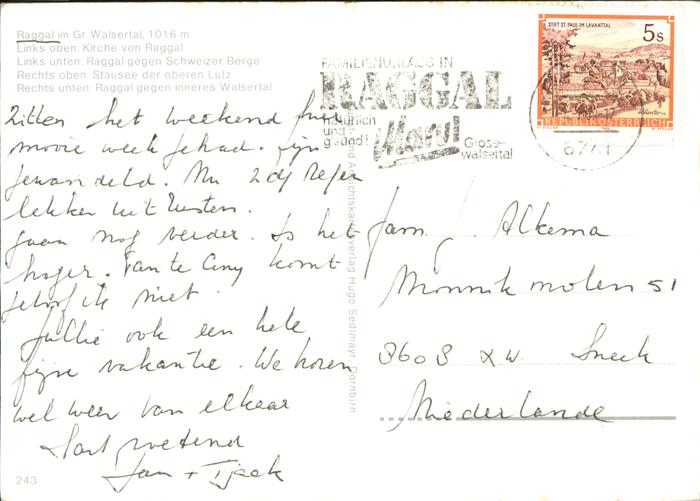 Raggal im Gr. Walsertal, 1016 m
Links oben: Kirche von Raggal
Links unten: Raggal gegen Schweizer Berge
Rechts oben: Stausee der oberen Lutz
Rechts unten: Raggal gegen inneres Walsertal
STIFT ST. PAUL IM LAVANTTAL
5s
REPUBLIK ÖSTERREICH
FAMILIENURLAUB IN
RAGGAL
natürlich
und
gesund!
Marul
Grosses-
walsertal
6741
Zitten het weekend hier
mooie week gehad. fijn
gewandeld. Nu 2 dg Regen
lekker uit rusten.
gaan nog verder. Is het
hoger. Tante Ciny komt
geloof ik niet.
Jullie ook een hele
fijne vakantie. We horen
wel weer van elkaar
Hart groetend
Jan + Tjack
Fam. Alkema
Monnikmolen 51
8608 XW Sneek
Niederlande
Ansichtskartenverlag Hugo Sedlmayr, Dornbirn
243